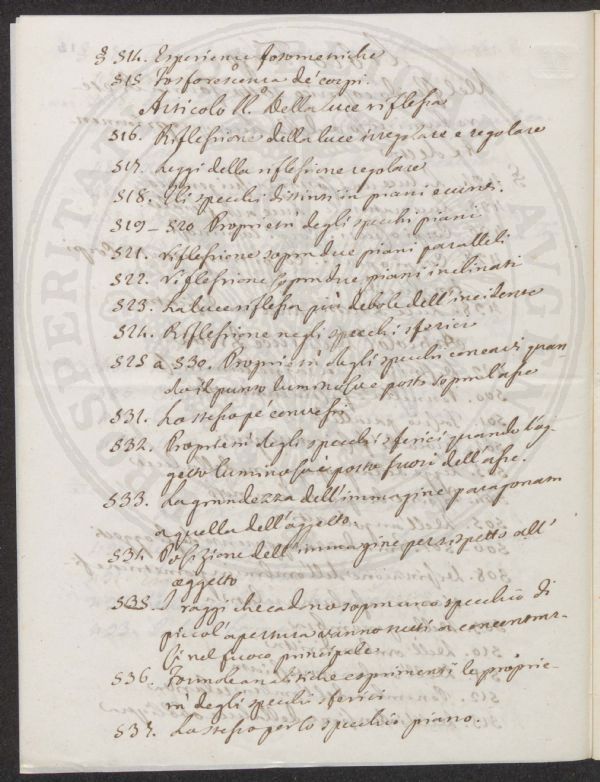 § 514. Esperienze fotometriche
515 Fosforescenza de' corpi.
Articolo II.° Della luce riflessa
516. Riflessione della luce irregolare e regolare
517. Leggi della riflessione regolare
518. Gli specchi distinti in piani e curvi.
519 – 520. Proprietà degli specchi piani
521. Riflessione sopra due piani paralleli
522. Riflessione sopra due piani inclinati
523. La luce riflessa più debole dell'incidente
524. Riflessione negli specchi sferici
525 a 530. Proprietà degli specchi concavi quan-
do il punto luminoso è posto sopra l'asse
531. Lo stesso pe' convessi
532. Proprietà degli specchi sferici quando l'og-
getto luminoso è posto fuori dell'asse.
533. La grandezza dell'immagine paragonata
a quella dell'oggetto
534 Posizione dell'immagine per rispetto all'
oggetto
535. I raggi che cadono sopra uno specchio di
piccol'apertura vanno tutti a concentrar-
si nel fuoco principale
536. Formole analitiche esprimenti le proprie-
tà degli specchi sferici
537. Lo stesso per lo specchio piano.
PROSPERITATI
AVG